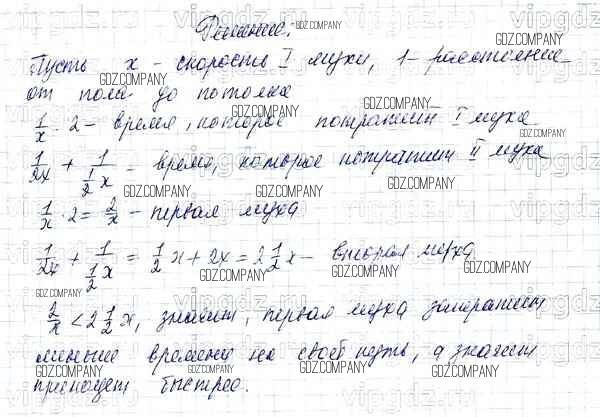 Решение:
Пусть x - скорость I мухи, 1 - расстояние
от пола до потолка
1/x · 2 - время, которое потратит I муха
1/2x + 1/(1/2 x) - время, которое потратит II муха
1/x · 2 = 2/x - первая муха
1/2x + 1/(1/2 x) = 1/2 x + 2x = 2 1/2 x - вторая муха
2/x < 2 1/2 x, значит, первая муха затратит
меньше времени на свой путь, а значит
приползет быстрее.
GDZ.COMPANY
vipgdz.ru